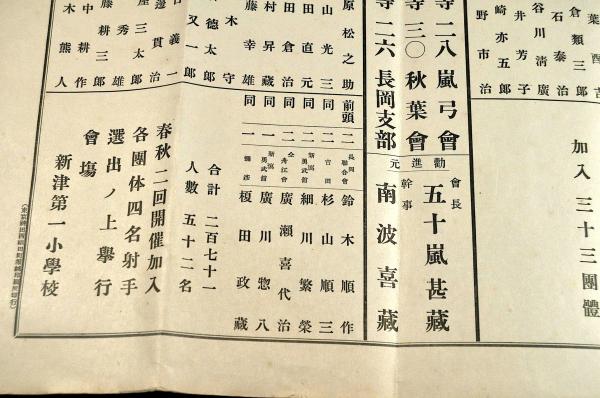 葉酉吉
倉類三郎
石泰治
谷川清廣
井芳子
崎亦五郎
野市治
加入三十三團體
寺二八嵐弓會
寺三〇秋葉會
寺二六長岡支部
勸進元
會長 五十嵐甚藏
幹事 南波喜藏
原松之助
山光三
田直元
田倉治
村昇藏
藤幸雄
前頭二 長岡聯合會 鈴木順作
同二 吉田 杉山順三
同二 新潟勇武館 細川繁榮
同二 全舟江會 廣瀬喜代治
同一 新潟勇武館 廣川惣八
同一 彌彦 榎田政藏
木守
德太郎
又一郎
合計 二百七十一
人數 五十二名
義一
邊貫治
座三郎
秀太郎
藤秀雄
耕三郎
中耕作
木熊人
春秋二回開催加入
各團体四名射手
選出ノ上舉行
會塲
新津第一小學校